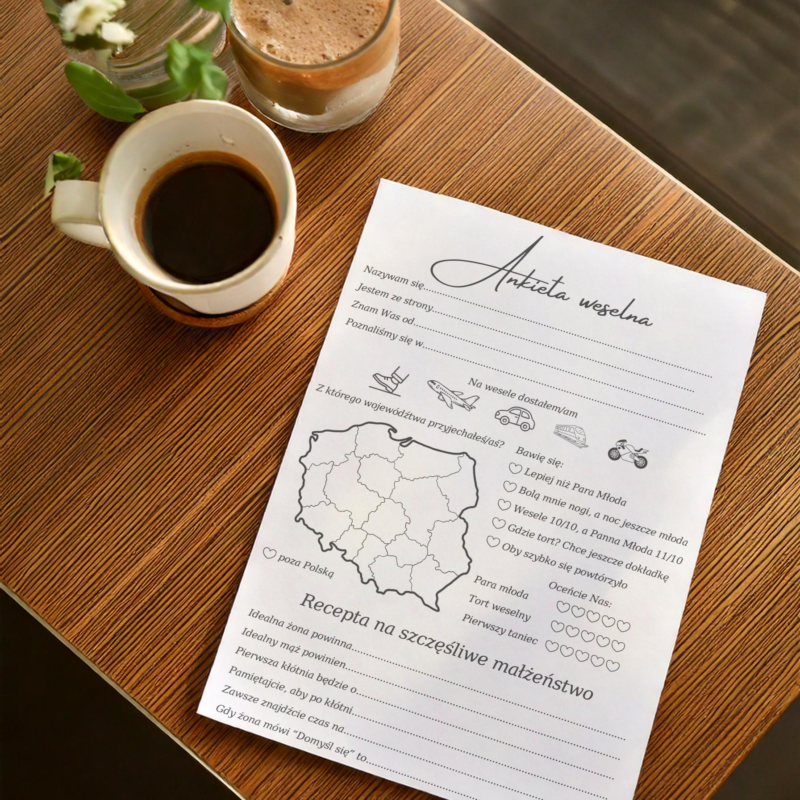 Ankieta weselna
Nazywam się
Jestem ze strony
Znam Was od
Poznaliśmy się w
Na wesele dostałem/am
Z którego województwa przyjechałeś/aś?
Bawię się:
Lepiej niż Para Młoda
Bolą mnie nogi, a noc jeszcze młoda
Wesele 10/10, a Panna Młoda 11/10
Gdzie tort? Chce jeszcze dokładkę
Oby szybko się powtórzyło
poza Polską
Oceńcie Nas:
Para młoda
Tort weselny
Pierwszy taniec
Recepta na szczęśliwe małżeństwo
Idealna żona powinna
Idealny mąż powinien
Pierwsza kłótnia będzie o
Pamiętajcie, aby po kłótni
Zawsze znajdźcie czas na
Gdy żona mówi "Domyśl się" to